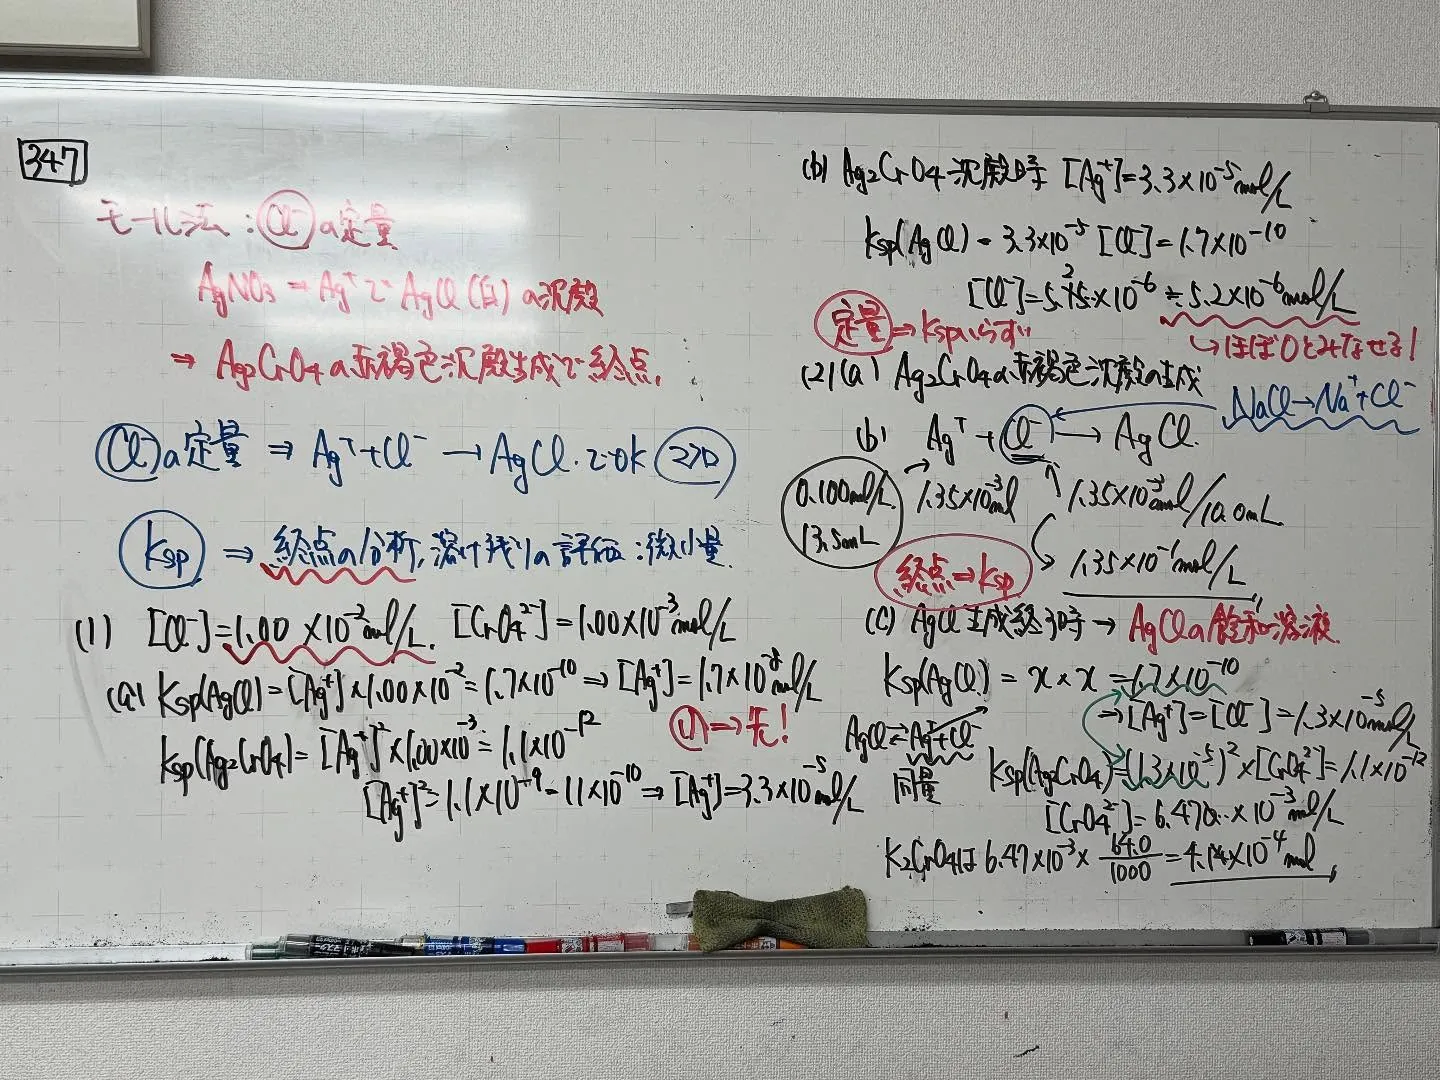 347
モール法：Cl⁻の定量
AgNO₃ → Ag⁺で AgCl(白)の沈殿
⇒ Ag₂CrO₄の赤褐色沈殿生成で終点.
Cl⁻の定量 ⇒ Ag⁺+Cl⁻ → AgCl.でOK
Ksp ⇒ 終点の分析, 溶け残りの評価：微小量
(1) [Cl⁻]=1.00×10⁻²mol/L. [CrO₄²⁻]=1.00×10⁻³mol/L
(a) Ksp(AgCl)=[Ag⁺]×1.00×10⁻²=1.7×10⁻¹⁰⇒[Ag⁺]=1.7×10⁻⁸mol/L
⇒先!
Ksp(Ag₂CrO₄)=[Ag⁺]²×1.00×10⁻³=1.1×10⁻¹²
[Ag⁺]²=1.1×10⁻⁹=11×10⁻¹⁰⇒[Ag⁺]=3.3×10⁻⁵mol/L
(b) Ag₂CrO₄沈殿時 [Ag⁺]=3.3×10⁻⁵mol/L
Ksp(AgCl)=3.3×10⁻⁵[Cl⁻]=1.7×10⁻¹⁰
[Cl⁻]=5.15×10⁻⁶≒5.2×10⁻⁶mol/L
定量⇒Kspいらず!
↳ほぼ0とみなせる!
(2)(a) Ag₂CrO₄の赤褐色沈殿の生成
NaCl→Na⁺+Cl⁻
(b) Ag⁺+Cl⁻→AgCl.
0.100mol/L
13.5mL
1.35×10⁻³mol
1.35×10⁻³mol/10.0mL
1.35×10⁻¹mol/L
終点⇒Ksp
(c) AgCl生成終了時→AgClの飽和溶液.
Ksp(AgCl)=x×x=1.7×10⁻¹⁰
AgCl⇄Ag⁺+Cl⁻
同量
⇒[Ag⁺]=[Cl⁻]=1.3×10⁻⁵mol/L
Ksp(Ag₂CrO₄)=(1.3×10⁻⁵)²×[CrO₄²⁻]=1.1×10⁻¹²
[CrO₄²⁻]=6.470..×10⁻³mol/L
K₂CrO₄は6.47×10⁻³×64.0/1000=4.14×10⁻⁴mol